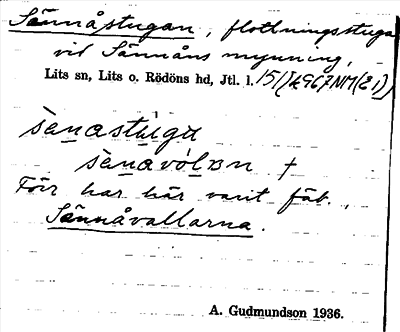 Sännåstugan, flottningsstuga
vid Sännåns mynning,
Lits sn, Lits o. Rödöns hd, Jtl. l. 15/
s̀enastùgu
s̀enavòlʙn +
Förr har här varit fäb.,
Sännåvallarna.
A. Gudmundson 1936.